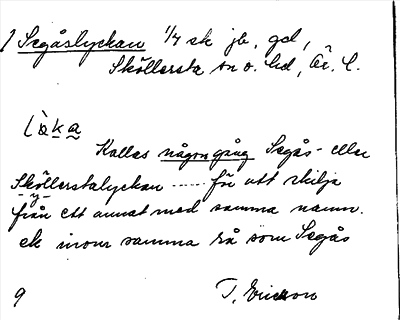 1 Segåslyckan 1/4 sk jb, gd,
Sköllersta sn o. hd, Ör. l.
lò̱ka̰
Kallas någon gång Segås- eller
Sköllerstalyckan ..... för att skilja
från ett annat med samma namn.
ek inom samma rå som Segås
9 T. Ericsson